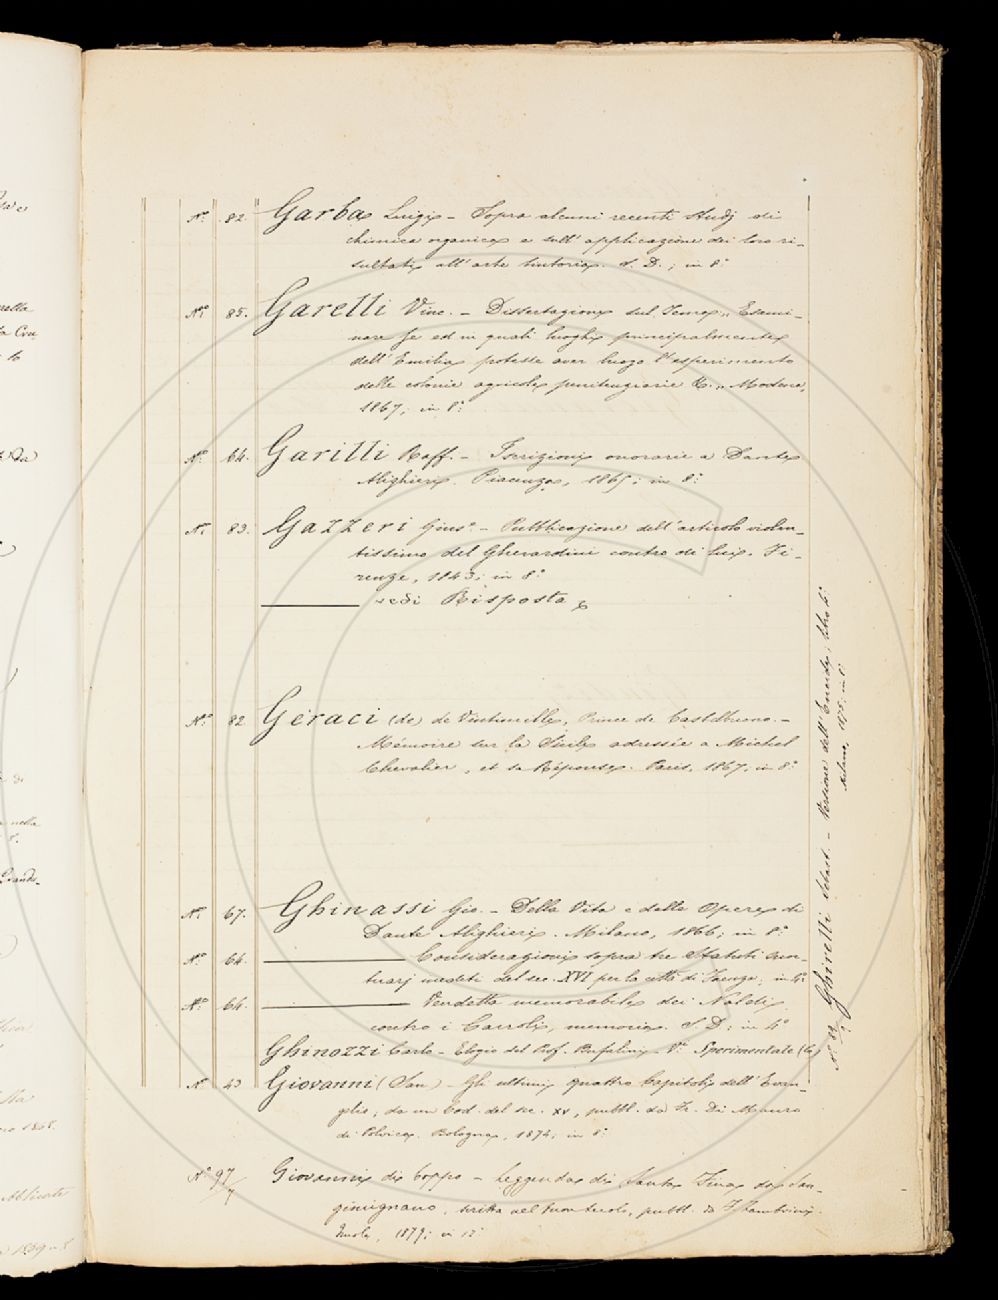 N.° 82. Garba Luigi - Sopra alcuni recenti Studj di
chimica organica e sull'applicazione dei loro ri-
sultati all'arte tintoria. S. D.; in 8°
N.° 85. Garelli Vinc. - Dissertazione sul Tema „ Esami-
nare se ed in quali luoghi principalmente
dell'Emilia potesse aver luogo l'esperimento
delle colonie agricole penitenziarie &. „ Modena,
1867; in 8°
N.° 64. Garilli Raff. - Iscrizioni onorarie a Dante
Alighieri. Piacenza, 1865; in 8°
N.° 83. Gazzeri Gius.e - Pubblicazione dell'articolo violen-
tissimo del Gherardini contro di lui. Fi-
renze, 1843; in 8°
vedi Risposta
N.° 82 Géraci (de) de Vintimille, Prince de Castelbuono. -
Mémoire sur la Sicile adressée a Michel
Chevalier, et sa Réponse. Paris, 1867; in 8°
N.° 67. Ghinassi Gio. - Della Vita e delle Opere di
Dante Alighieri. Milano, 1866; in 8°
N.° 64. Considerazioni sopra tre Statuti sun-
tuarj inediti del sec. XVI per la città di Faenza; in 4°
N.° 64. Vendetta memorabile dei Naldi
contro i Carroli, memoria. S. D.; in 4°
Ghinozzi Carlo - Elogio del Prof. Bufalini - V.i Sperimentale (Lo)
N.° 43 Giovanni (San) - Gli ultimi quattro Capitoli dell'Evan-
gelio, da un Cod. del sec. XV, pubbl. da Fr. Di Mauro
di Polvica. Bologna, 1874; in 8°
N.° 97/7 Giovanni di Coppo - Leggenda di Santa Fina da San-
gimignano, scritta nel buon secolo, pubbl. da F. Zambrini.
Imola, 1879; in 12°
N.° 89 Ghivelli Sebast. - Versione dell'Eneide, libro
Milano, 1875; in 8°